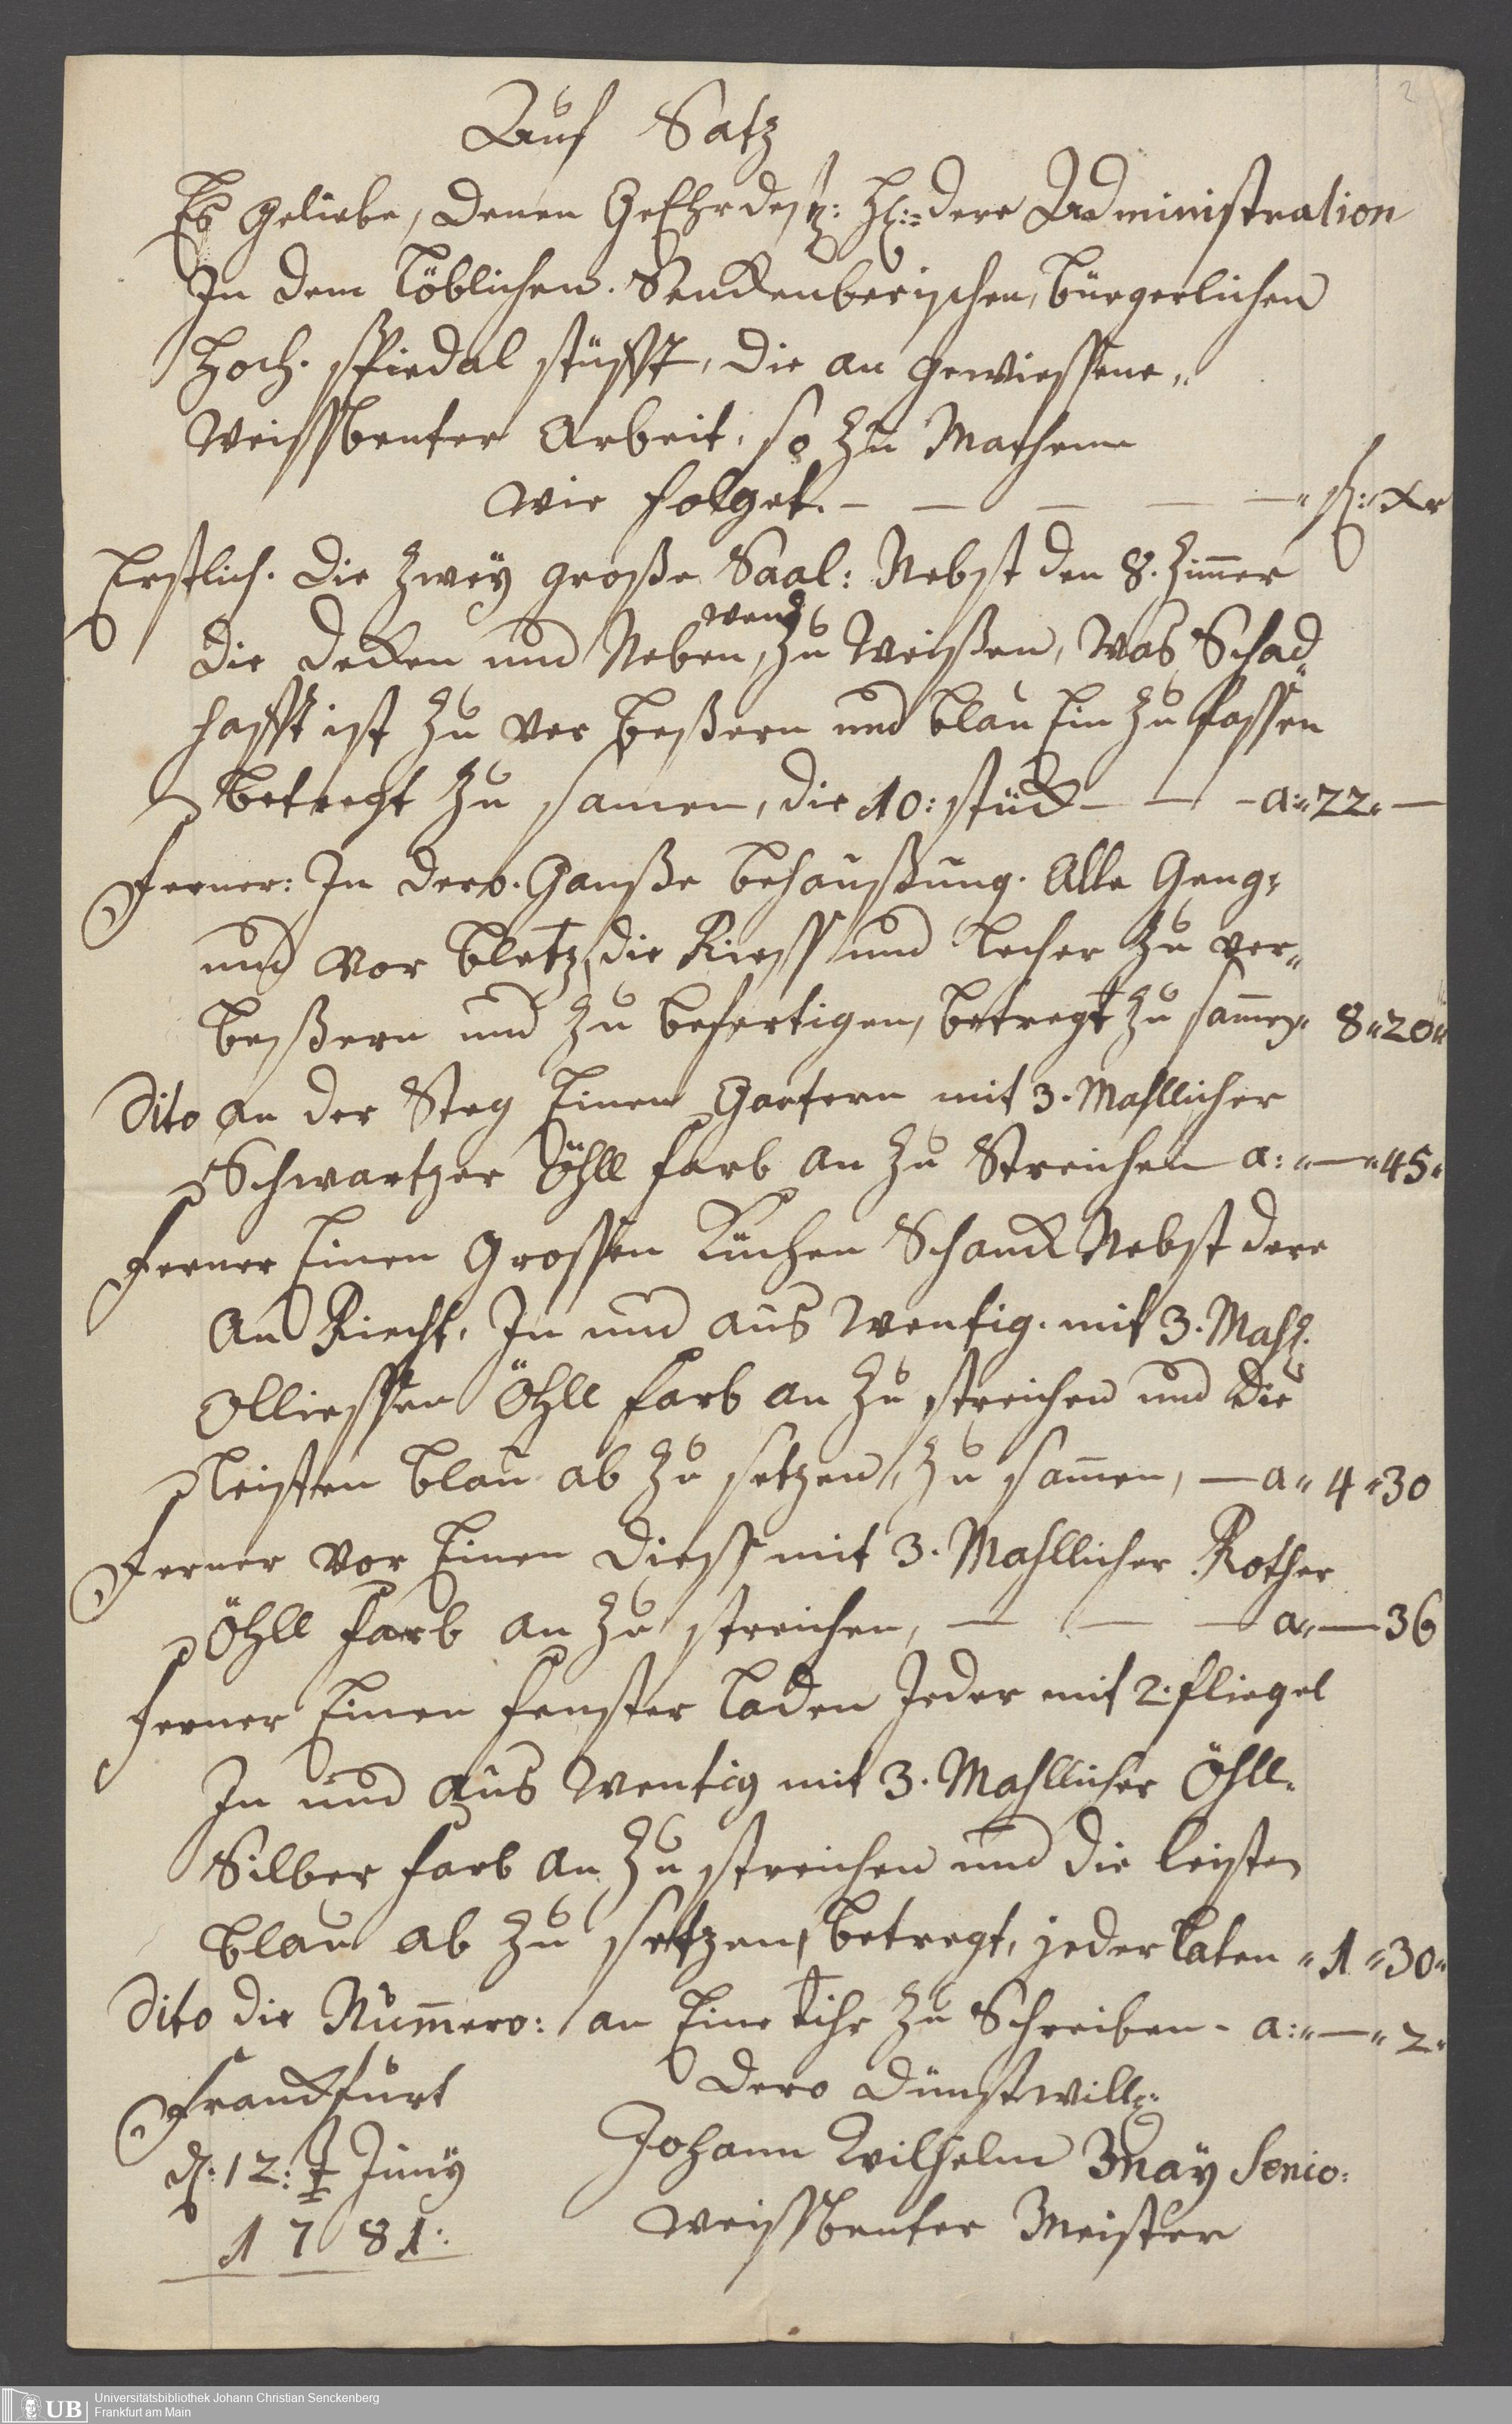 2
Auf Satz
Es geliebe, denen GeEhrdestz: H: dere Administration
In dem löblichen. Senckenberischen, bürgerlichen
Hoch. spiedal stüfft, die an gewiessene„
Weissbenter Arbeit, so zu Machenn
wie folget. — — — — —„ f: Xr
Erstlich. die zweÿ große Saal: Nebst den 8. Zim̅er
die decken und Neben wend zu Weißen, Was Schad„
hafft ist zu ver beßern und blau Ein zu fassen
betregt zu samen, die 10: stück — — a:„ 22„ —
Ferner: In dero. Ganße behaußung. Alle Geng„
und vor bletz, die Riess und lecher zu ver„
beßern und zu befertigen, betregt zu sam̅en„ 8„ 20„
Dito an der Steg Einen Gartern mit 3. Mahllicher
Schwartzer Öhll farb an zu Streichen a: „ — „ 45„
Ferner Einen Grossen Küchen Schanck Nebst dere
An Riecht, In und aus Wentig. mit 3. Mahl.
Olliessen Öhll farb an zu streichen und die
leisten blau ab zu setzen, zu sam̅en, — a„ 4 „ 30
Ferner vor Einen diess mit 3. Mahllicher Rother
Öhll farb an zu streichen, — — — a„ — 36
Ferner Einen fenster laden Jeder mit 2. fliegel
In und aus Wentig mit 3. Mahllicher Öhll„
Silber farb an zu streichen und die leisten
blau ab zu setzen, betregt, jeder laten „ 1 „ 30„
Dito die Num̅ero: an Eine tihr zu Schreiben - a: „ — „ 2„
Franckfurt
d: 12: Junÿ
1781:
Dero dünstwill:
Johann Wilhelm Maÿ Senio:
Weissbenter Meister
UB Universitätsbibliothek Johann Christian Senckenberg
Frankfurt am Main